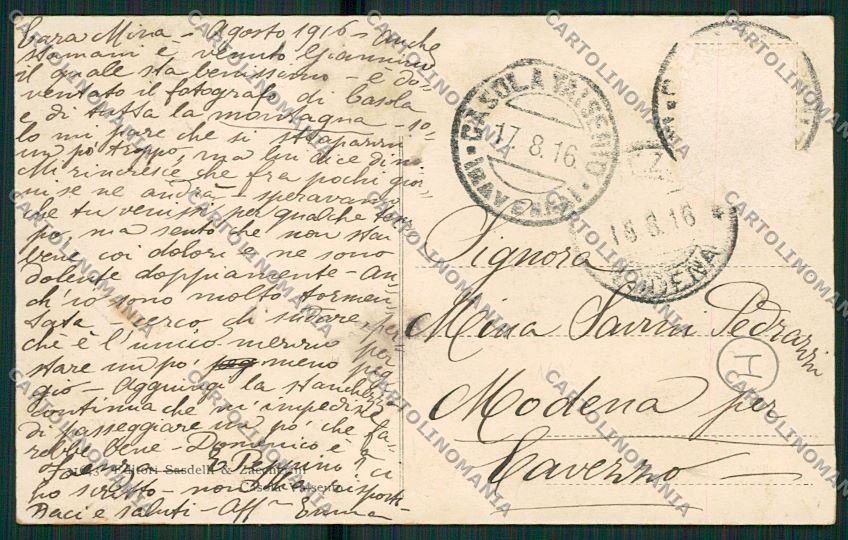 Cara Mina - Agosto 1916 - Anche
stamani è venuto Giannino
il quale sta benissimo - è di-
ventato il fotografo di Casola
e di tutta la montagna - io
lo mi pare che si strapazzi
un pò troppo, ma lui dice di no
Mi rincresce che fra pochi gior-
ni se ne andrà - speravamo
che tu venissi per qualche tem
po, ma sento che non stai
bene coi dolori e ne sono
dolente doppiamente - an-
ch'io sono molto tormen
tata cerco di sudare per-
chè è l'unico mezzo per
stare un pò meno peg
gio - Aggiungi la stanchezza
continua che m'impedisce
di passeggiare un pò che fa-
rebbe bene - Domenico è
e Peppino ci
ho scritto - non
Baci e saluti - Aff. Emma
Editori Sasdelli & Zacchini
Casola Valsenio
CASOLA VALSENIO
17.8.16
(RAVENNA)
18.8.16
MODENA
Signora
Mina Savini Pedrazzi
Modena per
Saverno
H
CARTOLINOMANIA